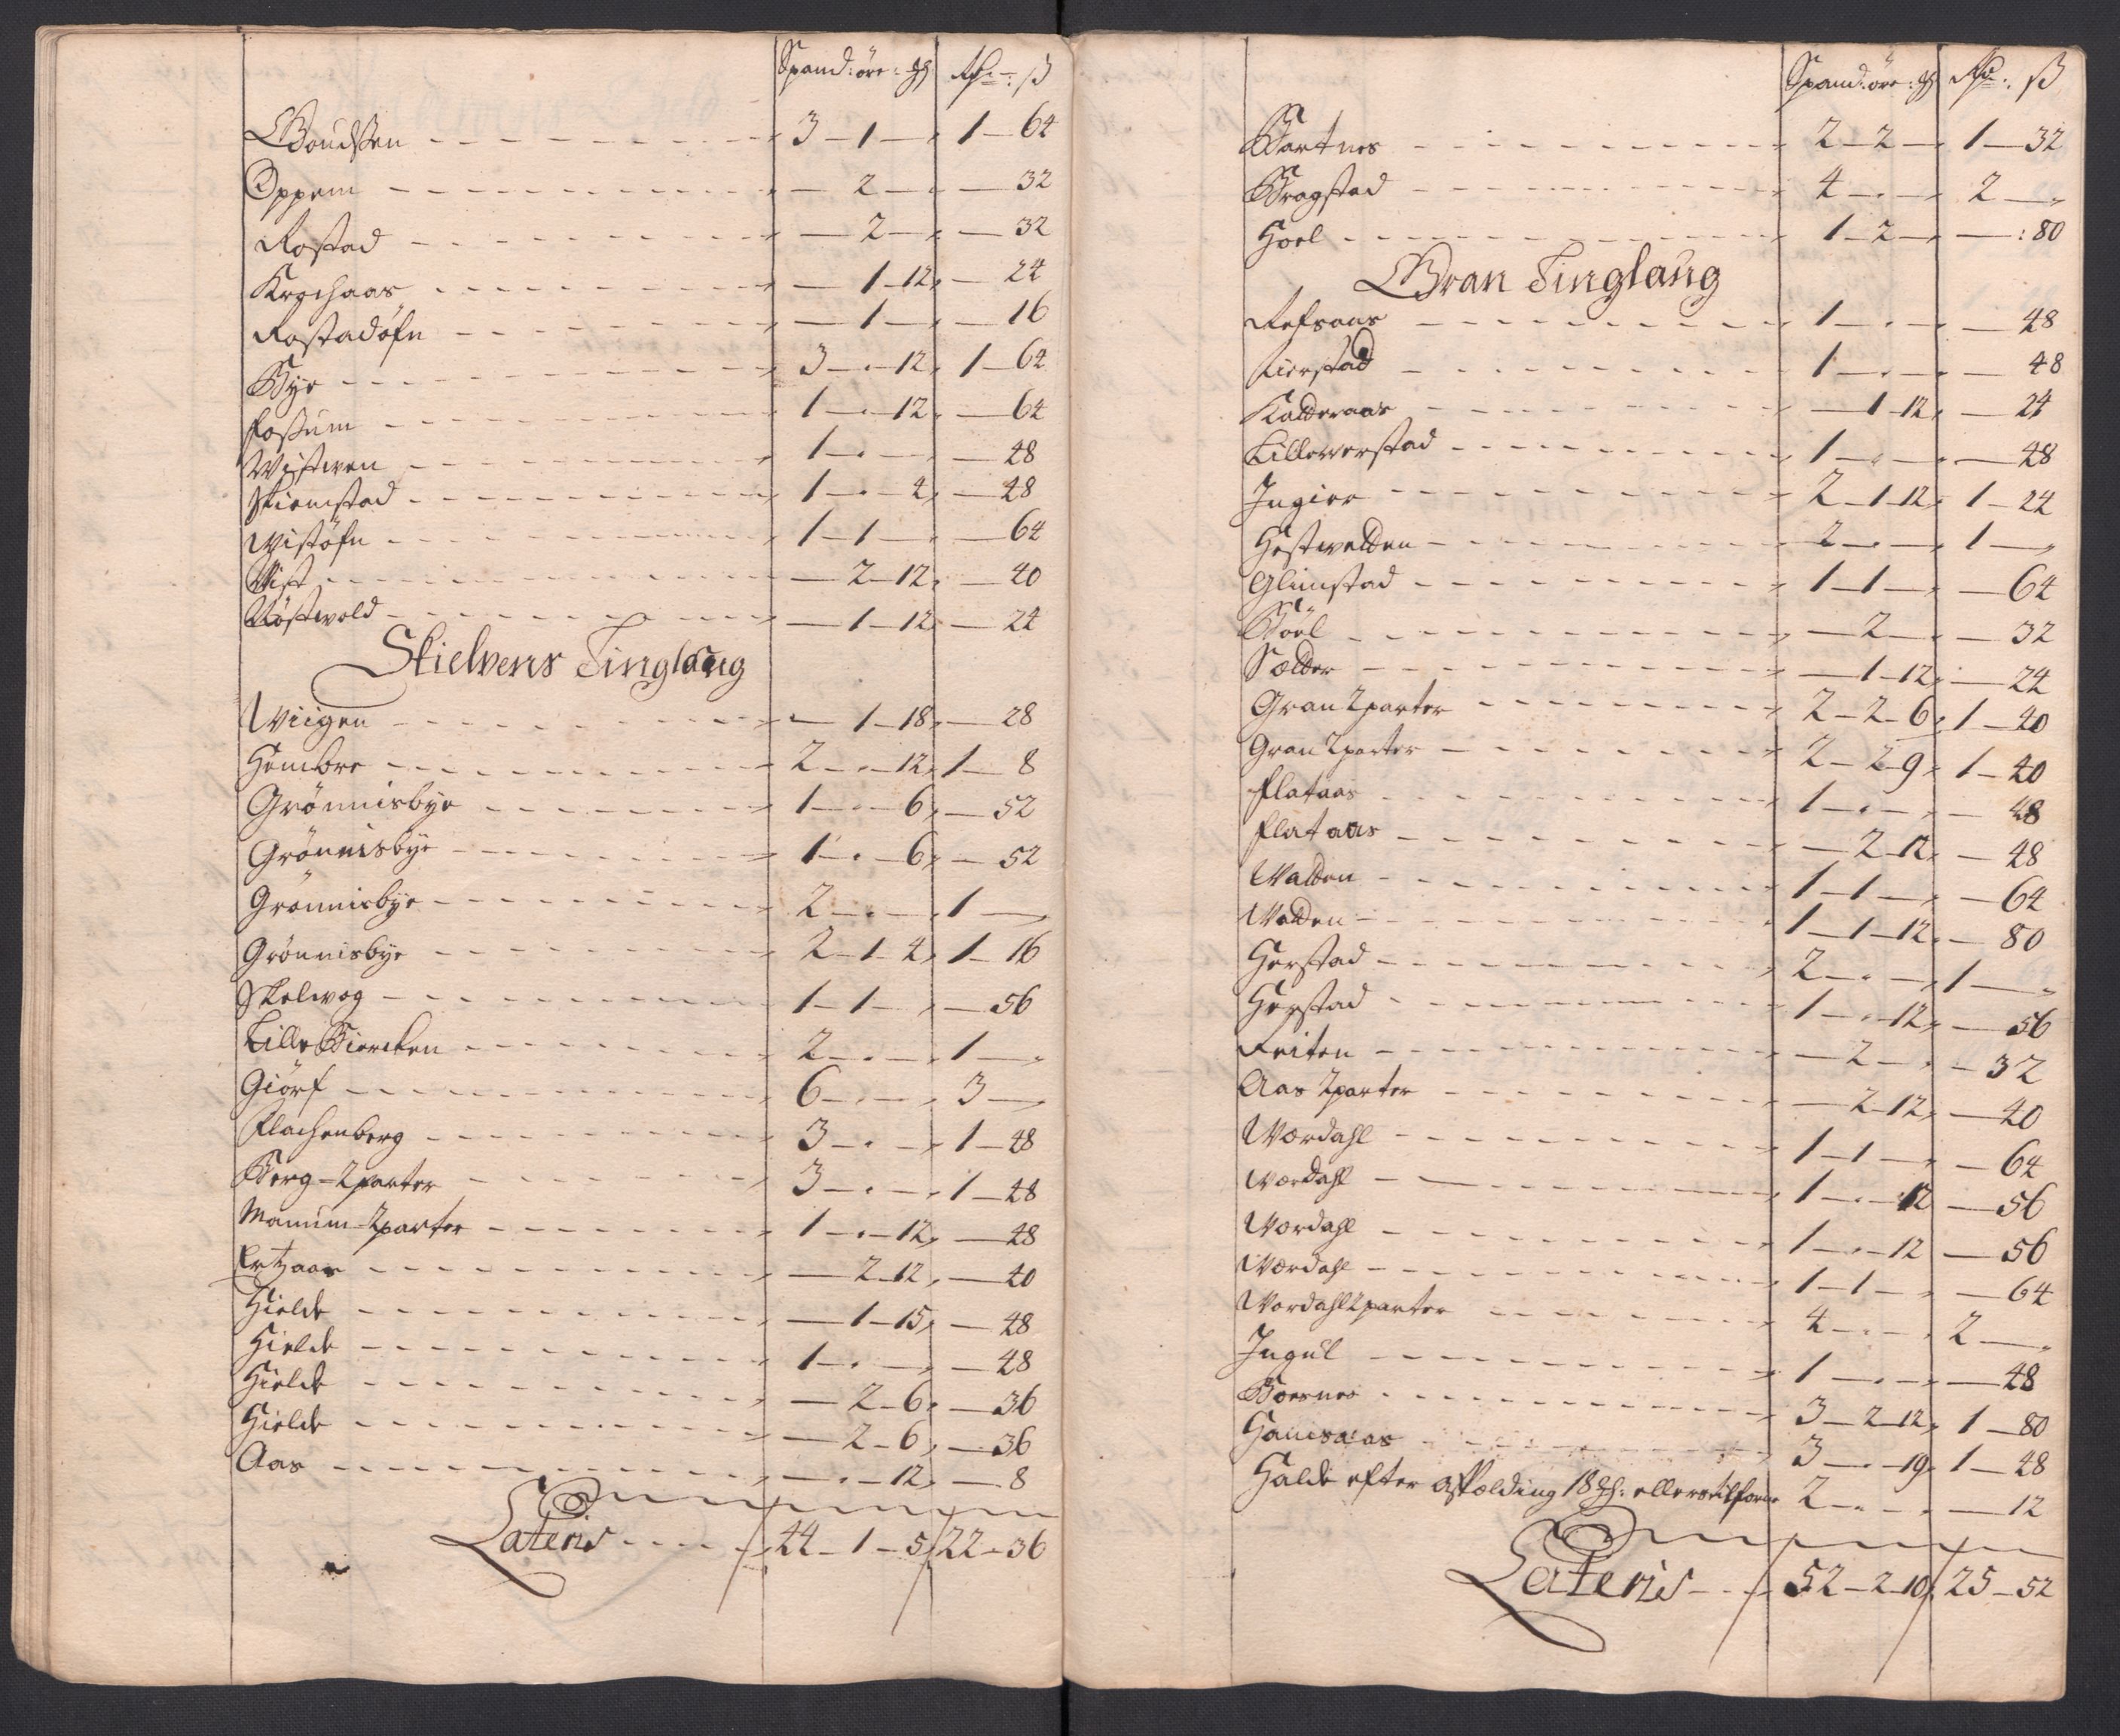 Spand: öre: gß Rdr: ß
Boudßen 3 1 1 64
Oppem 2 32
Rostad 2 32
Kroghaas 1 12 24
Rostadöfn 1 16
Bye 3 12 1 64
Foßum 1 12 64
Wistwen 1 48
Skiemstad 1 4 48
Wistöfn 1 1 64
Wist 2 12 40
Röstwold 1 12 24
Skielvens Tinglaug
Wiigen 1 18 28
Hembre 2 12 1 8
Grönnisbye 1 6 52
Grönnisbye 1 6 52
Grönnisbye 2 1
Grönnisbye 2 1 4 1 16
Skelwog 1 1 56
Lille Biercken 2 1
Giörf 6 3
Flachenberg 3 1 48
Berg 2 parter 3 1 48
Mamum 2 parter 1 12 48
Ertzaas 2 12 40
Hielde 1 15 48
Hielde 1 48
Hielde 2 6 36
Hielde 2 6 36
Aas 12 8
Lateris 44 1 5 22 36
Spand: öre: gß Rdr: ß
Bartnes 2 2 1 32
Bragstad 4 2
Hoel 1 2 80
Gran Tinglaug
Refsaas 1 48
Kierstad 1 48
Kalderaas 1 12 24
Lilleverstad 1 48
Ingier 2 1 12 1 24
Hestwalden 2 1
Glimstad 1 1 64
Böel 2 32
Sælder 1 12 24
Gran 2 parter 2 2 6 1 40
Gran 2 parter 2 2 9 1 40
Flataas 1 48
Flataas 2 12 48
Walden 1 1 64
Walden 1 1 12 80
Herstad 2 1
Herstad 1 12 56
Reiten 2 32
Aas 2 parter 2 12 40
Wordahl 1 1 64
Wordahl 1 12 56
Wordahl 1 12 56
Wordahl 1 1 64
Wordahl 2 parter 4 2
Ingul 1 48
Boesnes 3 2 12 1 80
Hanisaas 3 19 1 48
Halde efter afælding 18 gß: ellers tilforne 2 12
Lateris 52 2 10 25 52